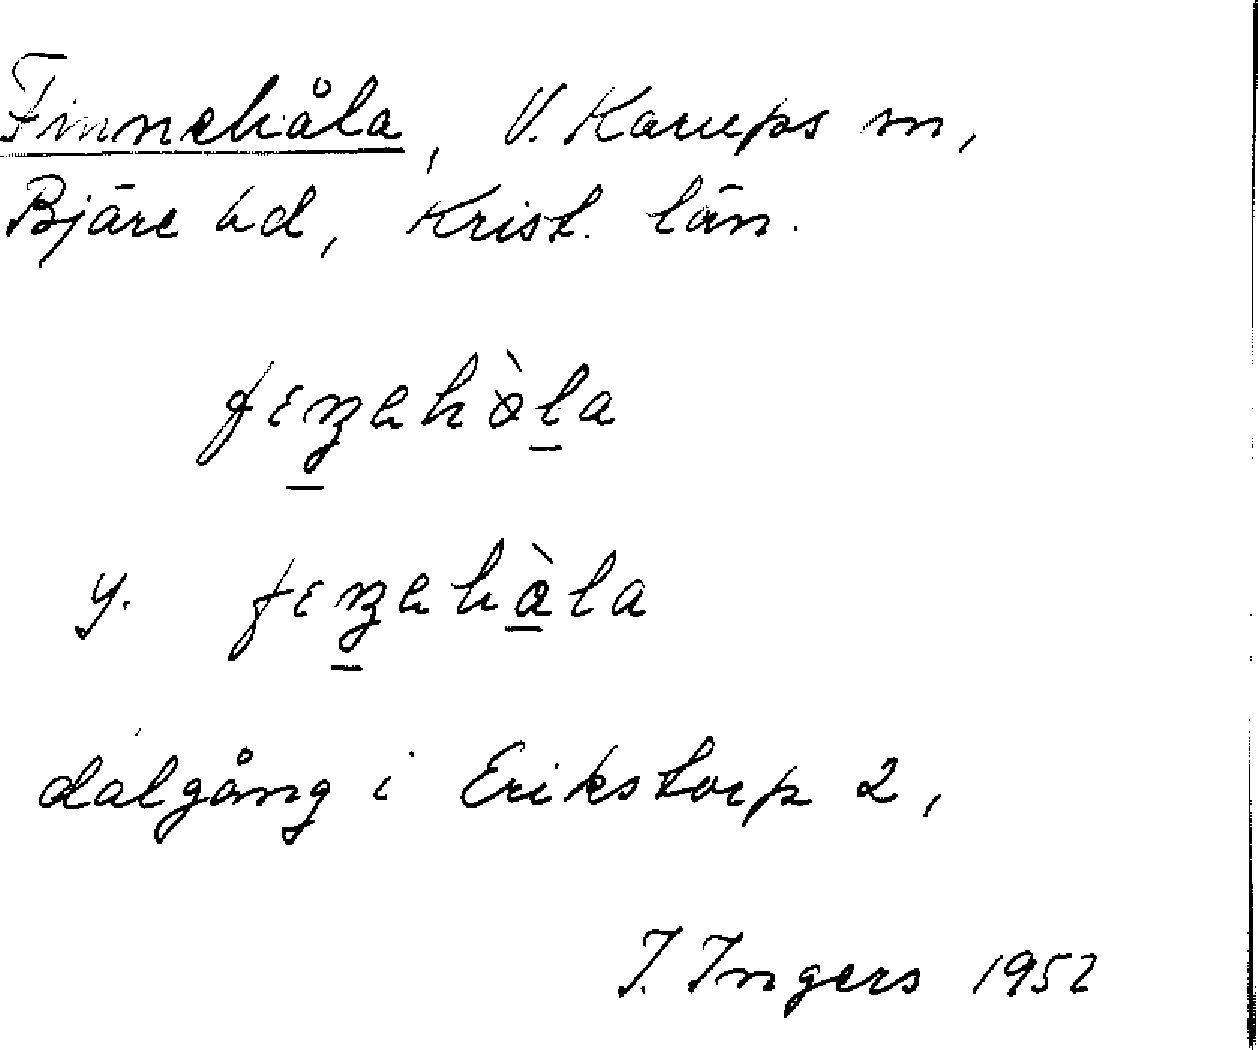 Finnehåla, V. Karups sn,
Bjäre hd, Krist. län.
y.
dalgång i Erikstorp 2,
I. Ingers 1952